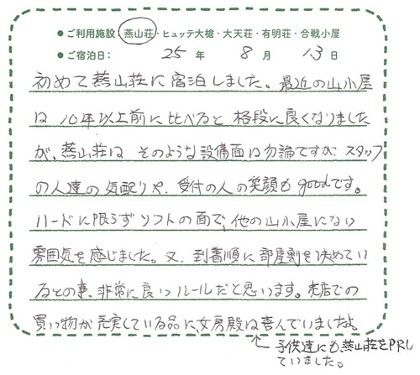 ●ご利用施設・燕山荘・ヒュッテ大槍・大天荘・有明荘・合戦小屋
●ご宿泊日： 25 年 8 月 13 日
初めて燕山荘に宿泊しました。最近の山小屋
は10年以上前に比べると格段に良くなりました
が、燕山荘はそのような設備面は勿論ですが、スタッフ
の人達の気配りや、受付の人の笑顔もgoodです。
ハードに限らずソフトの面で、他の山小屋にない
雰囲気を感じました。又、到着順に部屋割を決めてい
るとの事、非常に良いルールだと思います。売店での
買い物が充実している品に、女房殿は喜んでいましたよ。
↑子供達にも燕山荘をPRし
ていました。